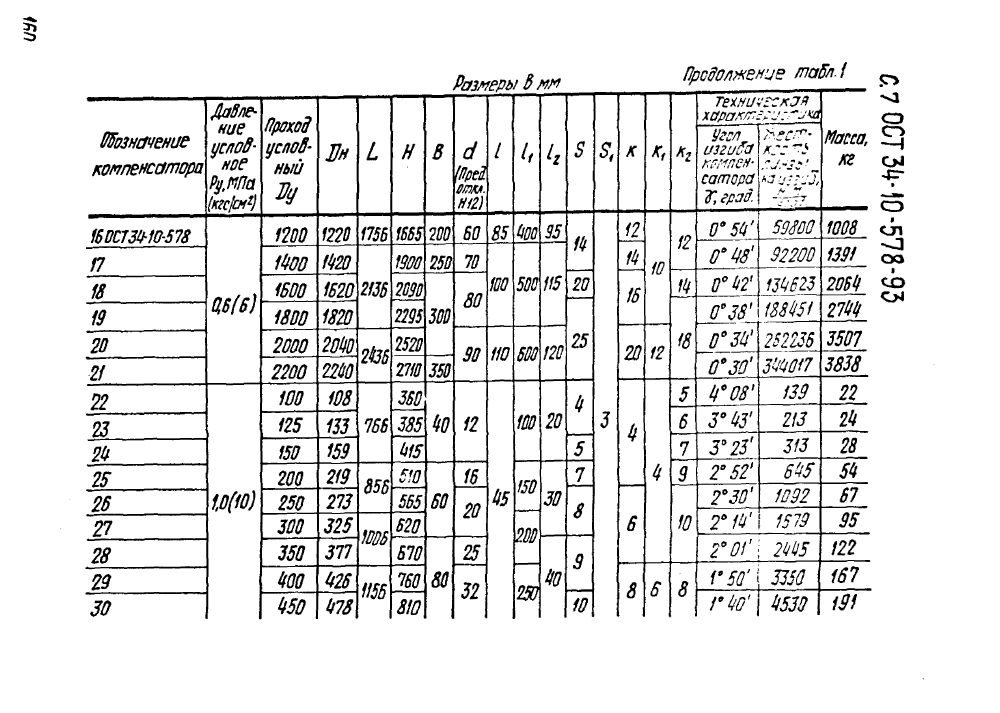 160
С. 7 ОСТ 34-10-578-93
Размеры в мм Продолжение табл. 1
Обозначение компенсатора | Давление условное Ру, МПа (кгс/см²) | Проход условный Dу | Dн | L | H | B | d (Пред. откл. H12) | l | l₁ | l₂ | S | S₁ | к | к₁ | к₂ | Техническая характеристика: Угол изгиба компенсатора γ, град. | Масса, кг
16 ОСТ 34-10-578 | 0,6(6) | 1200 | 1220 | 1756 | 1665 | 200 | 60 | 85 | 400 | 95 | 14 | 3 | 12 | 10 | 12 | 0° 54' | 59800 | 1008
17 | 1400 | 1420 | 2136 | 1900 | 250 | 70 | 100 | 500 | 115 | 14 | 0° 48' | 92200 | 1391
18 | 1600 | 1620 | 2090 | 300 | 80 | 20 | 16 | 14 | 0° 42' | 134623 | 2064
19 | 1800 | 1820 | 2295 | 25 | 18 | 0° 38' | 188451 | 2744
20 | 2000 | 2040 | 2436 | 2520 | 90 | 110 | 600 | 120 | 20 | 12 | 0° 34' | 262236 | 3507
21 | 2200 | 2240 | 2710 | 350 | 0° 30' | 344017 | 3838
22 | 1,0(10) | 100 | 108 | 766 | 360 | 40 | 12 | 45 | 100 | 20 | 4 | 4 | 4 | 5 | 4° 08' | 139 | 22
23 | 125 | 133 | 385 | 6 | 3° 43' | 213 | 24
24 | 150 | 159 | 415 | 5 | 7 | 3° 23' | 313 | 28
25 | 200 | 219 | 856 | 510 | 60 | 16 | 150 | 30 | 7 | 9 | 2° 52' | 645 | 54
26 | 250 | 273 | 565 | 20 | 8 | 6 | 10 | 2° 30' | 1092 | 67
27 | 300 | 325 | 1006 | 620 | 200 | 2° 14' | 1579 | 95
28 | 350 | 377 | 670 | 80 | 25 | 40 | 9 | 2° 01' | 2445 | 122
29 | 400 | 426 | 1156 | 760 | 32 | 250 | 8 | 6 | 8 | 1° 50' | 3350 | 167
30 | 450 | 478 | 810 | 10 | 1° 40' | 4530 | 191